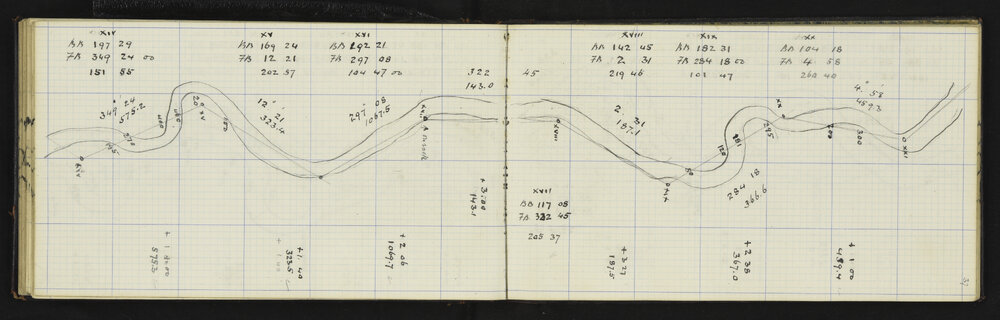 XIV
BB 197 29
FB 349 24 00
151 55
XV
BB 169 24
FB 12 21
202 57
XVI
BB 192 21
FB 297 08
104 47 00
322 45
143.0
XVIII
BB 142 45
FB 2 31
219 46
XIX
BB 182 31
FB 284 18 00
101 47
XX
BB 104 18
FB 4 58
260 40
349 24
575.2
12 21
323.4
297 08
1067.5
2 31
187.1
284 18
366.6
4 58
459.3
XIV
XV
XVIII
XIX
XX
XXI
120
295
200
300
XVII
BB 117 08
FB 322 45
205 37
+ 3.00
143.1
+ 1.40
323.5
+ 2 06
1067.7
+ 3.27
187.5
+ 2 38
367.0
+ 1 00
459.4